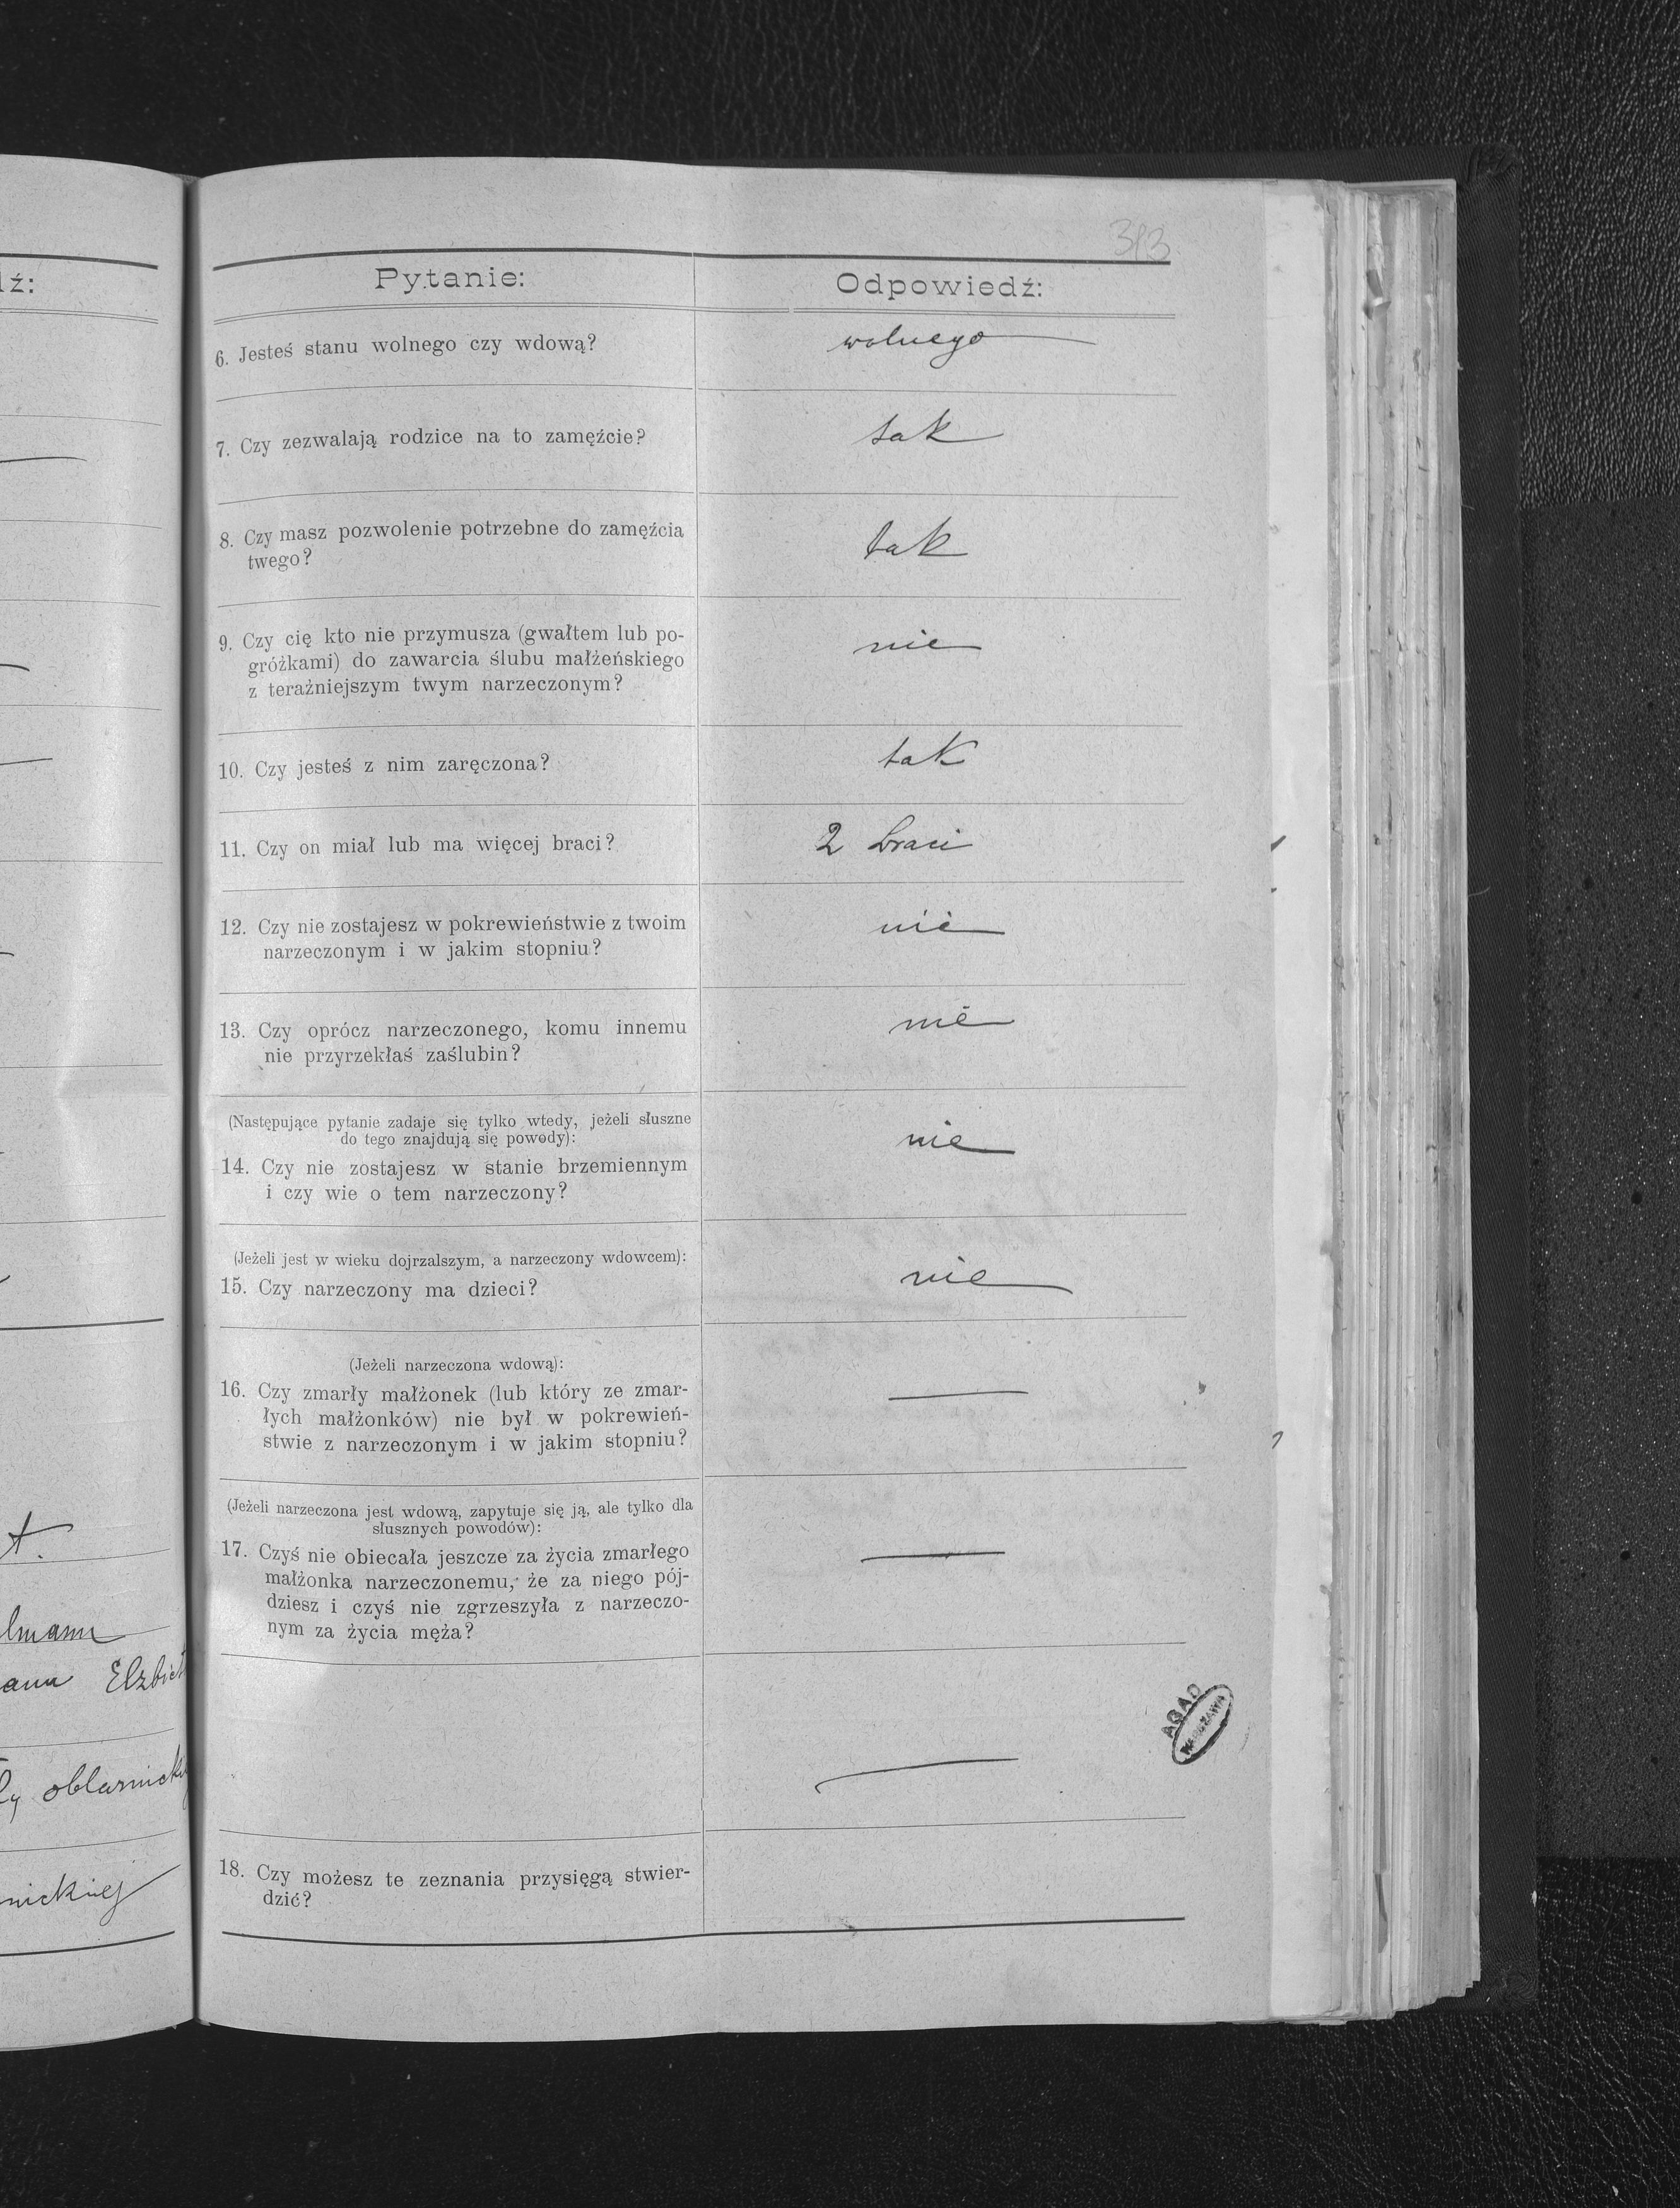 dź:
t.
lmann
ann Elzbiet
ły oblarnick
nickiej
313
Pytanie: Odpowiedź:
6. Jesteś stanu wolnego czy wdową? wolnego
7. Czy zezwalają rodzice na to zamęźcie? tak
8. Czy masz pozwolenie potrzebne do zamęźcia
twego? tak
9. Czy cię kto nie przymusza (gwałtem lub po-
gróżkami) do zawarcia ślubu małżeńskiego nie
z teraźniejszym twym narzeczonym?
10. Czy jesteś z nim zaręczona? tak
11. Czy on miał lub ma więcej braci? 2 braci
12. Czy nie zostajesz w pokrewieństwie z twoim nie
narzeczonym i w jakim stopniu?
13. Czy oprócz narzeczonego, komu innemu nie
nie przyrzekłaś zaślubin?
(Następujące pytanie zadaje się tylko wtedy, jeżeli słuszne
do tego znajdują się powody): nie
14. Czy nie zostajesz w stanie brzemiennym
i czy wie o tem narzeczony?
(Jeżeli jest w wieku dojrzalszym, a narzeczony wdowcem):
15. Czy narzeczony ma dzieci? nie
(Jeżeli narzeczona wdową):
16. Czy zmarły małżonek (lub który ze zmar-
łych małżonków) nie był w pokrewień-
stwie z narzeczonym i w jakim stopniu?
(Jeżeli narzeczona jest wdową, zapytuje się ją, ale tylko dla
słusznych powodów):
17. Czyś nie obiecała jeszcze za życia zmarłego
małżonka narzeczonemu, że za niego pój-
dziesz i czyś nie zgrzeszyła z narzeczo-
nym za życia męża?
AGAD
WARSZAWA
18. Czy możesz te zeznania przysięgą stwier-
dzić?